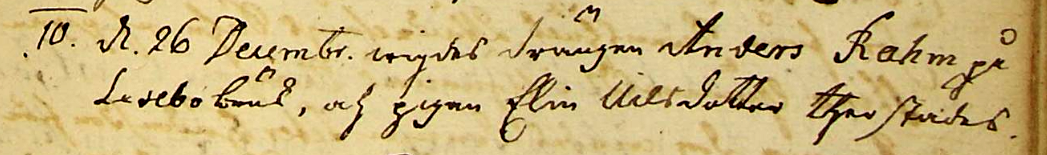 10. d. 26 Decembr. wigdes Drängen Anders Rahm på
Lesebo bruk, och pigan Elin Nilsdotter ther städes.